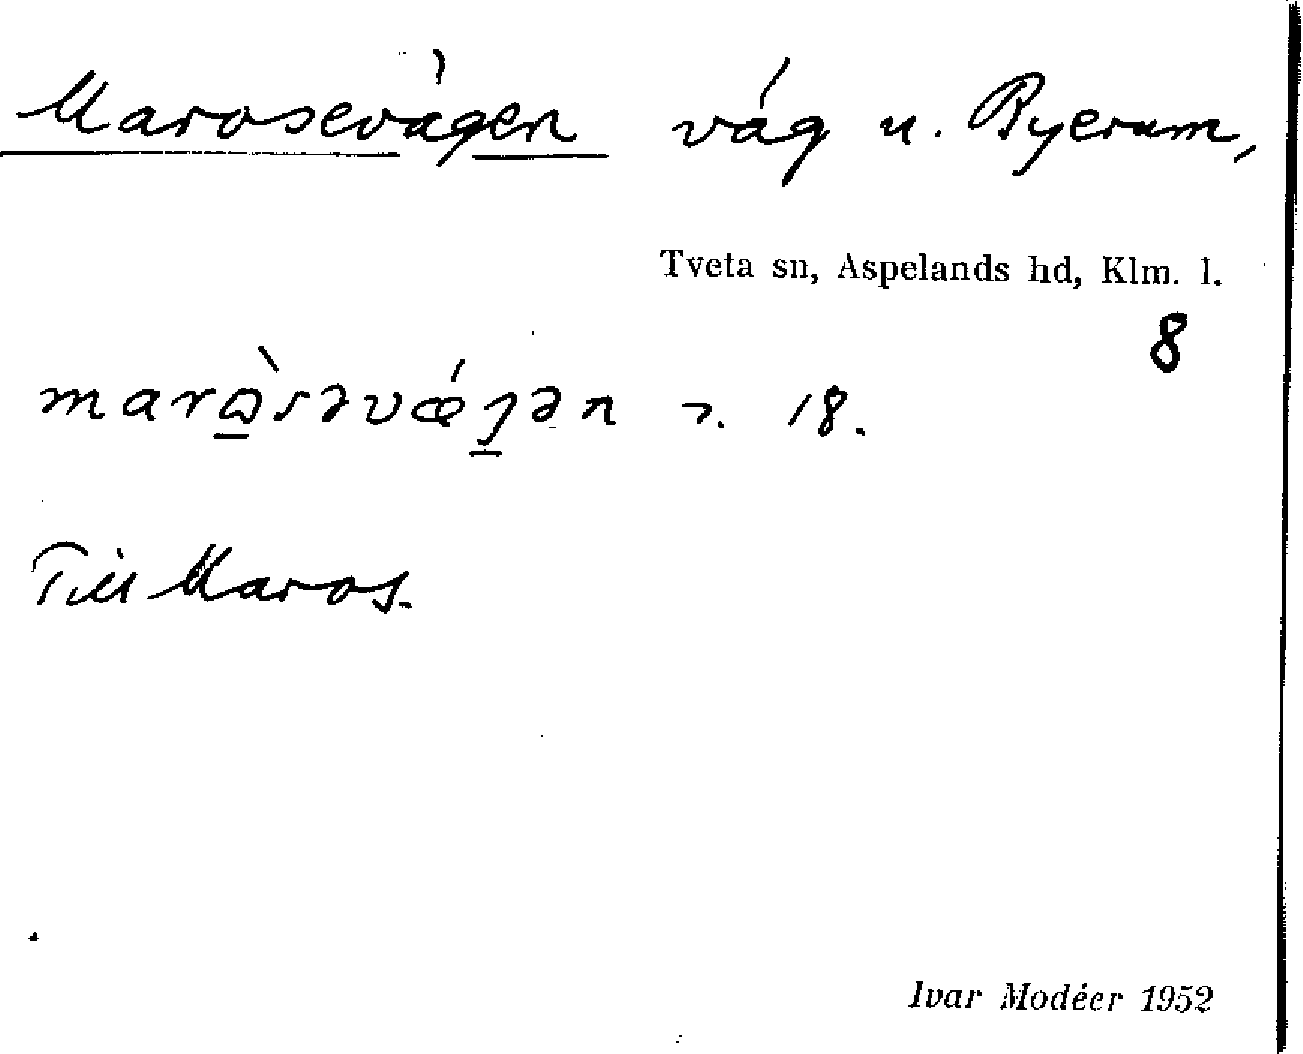 Marosevägen väg u. Byerum,
Tveta sn, Aspelands hd, Klm. l.
8
marɷ̀səvǽȷən 18.
Till Maros.
Ivar Modéer 1952